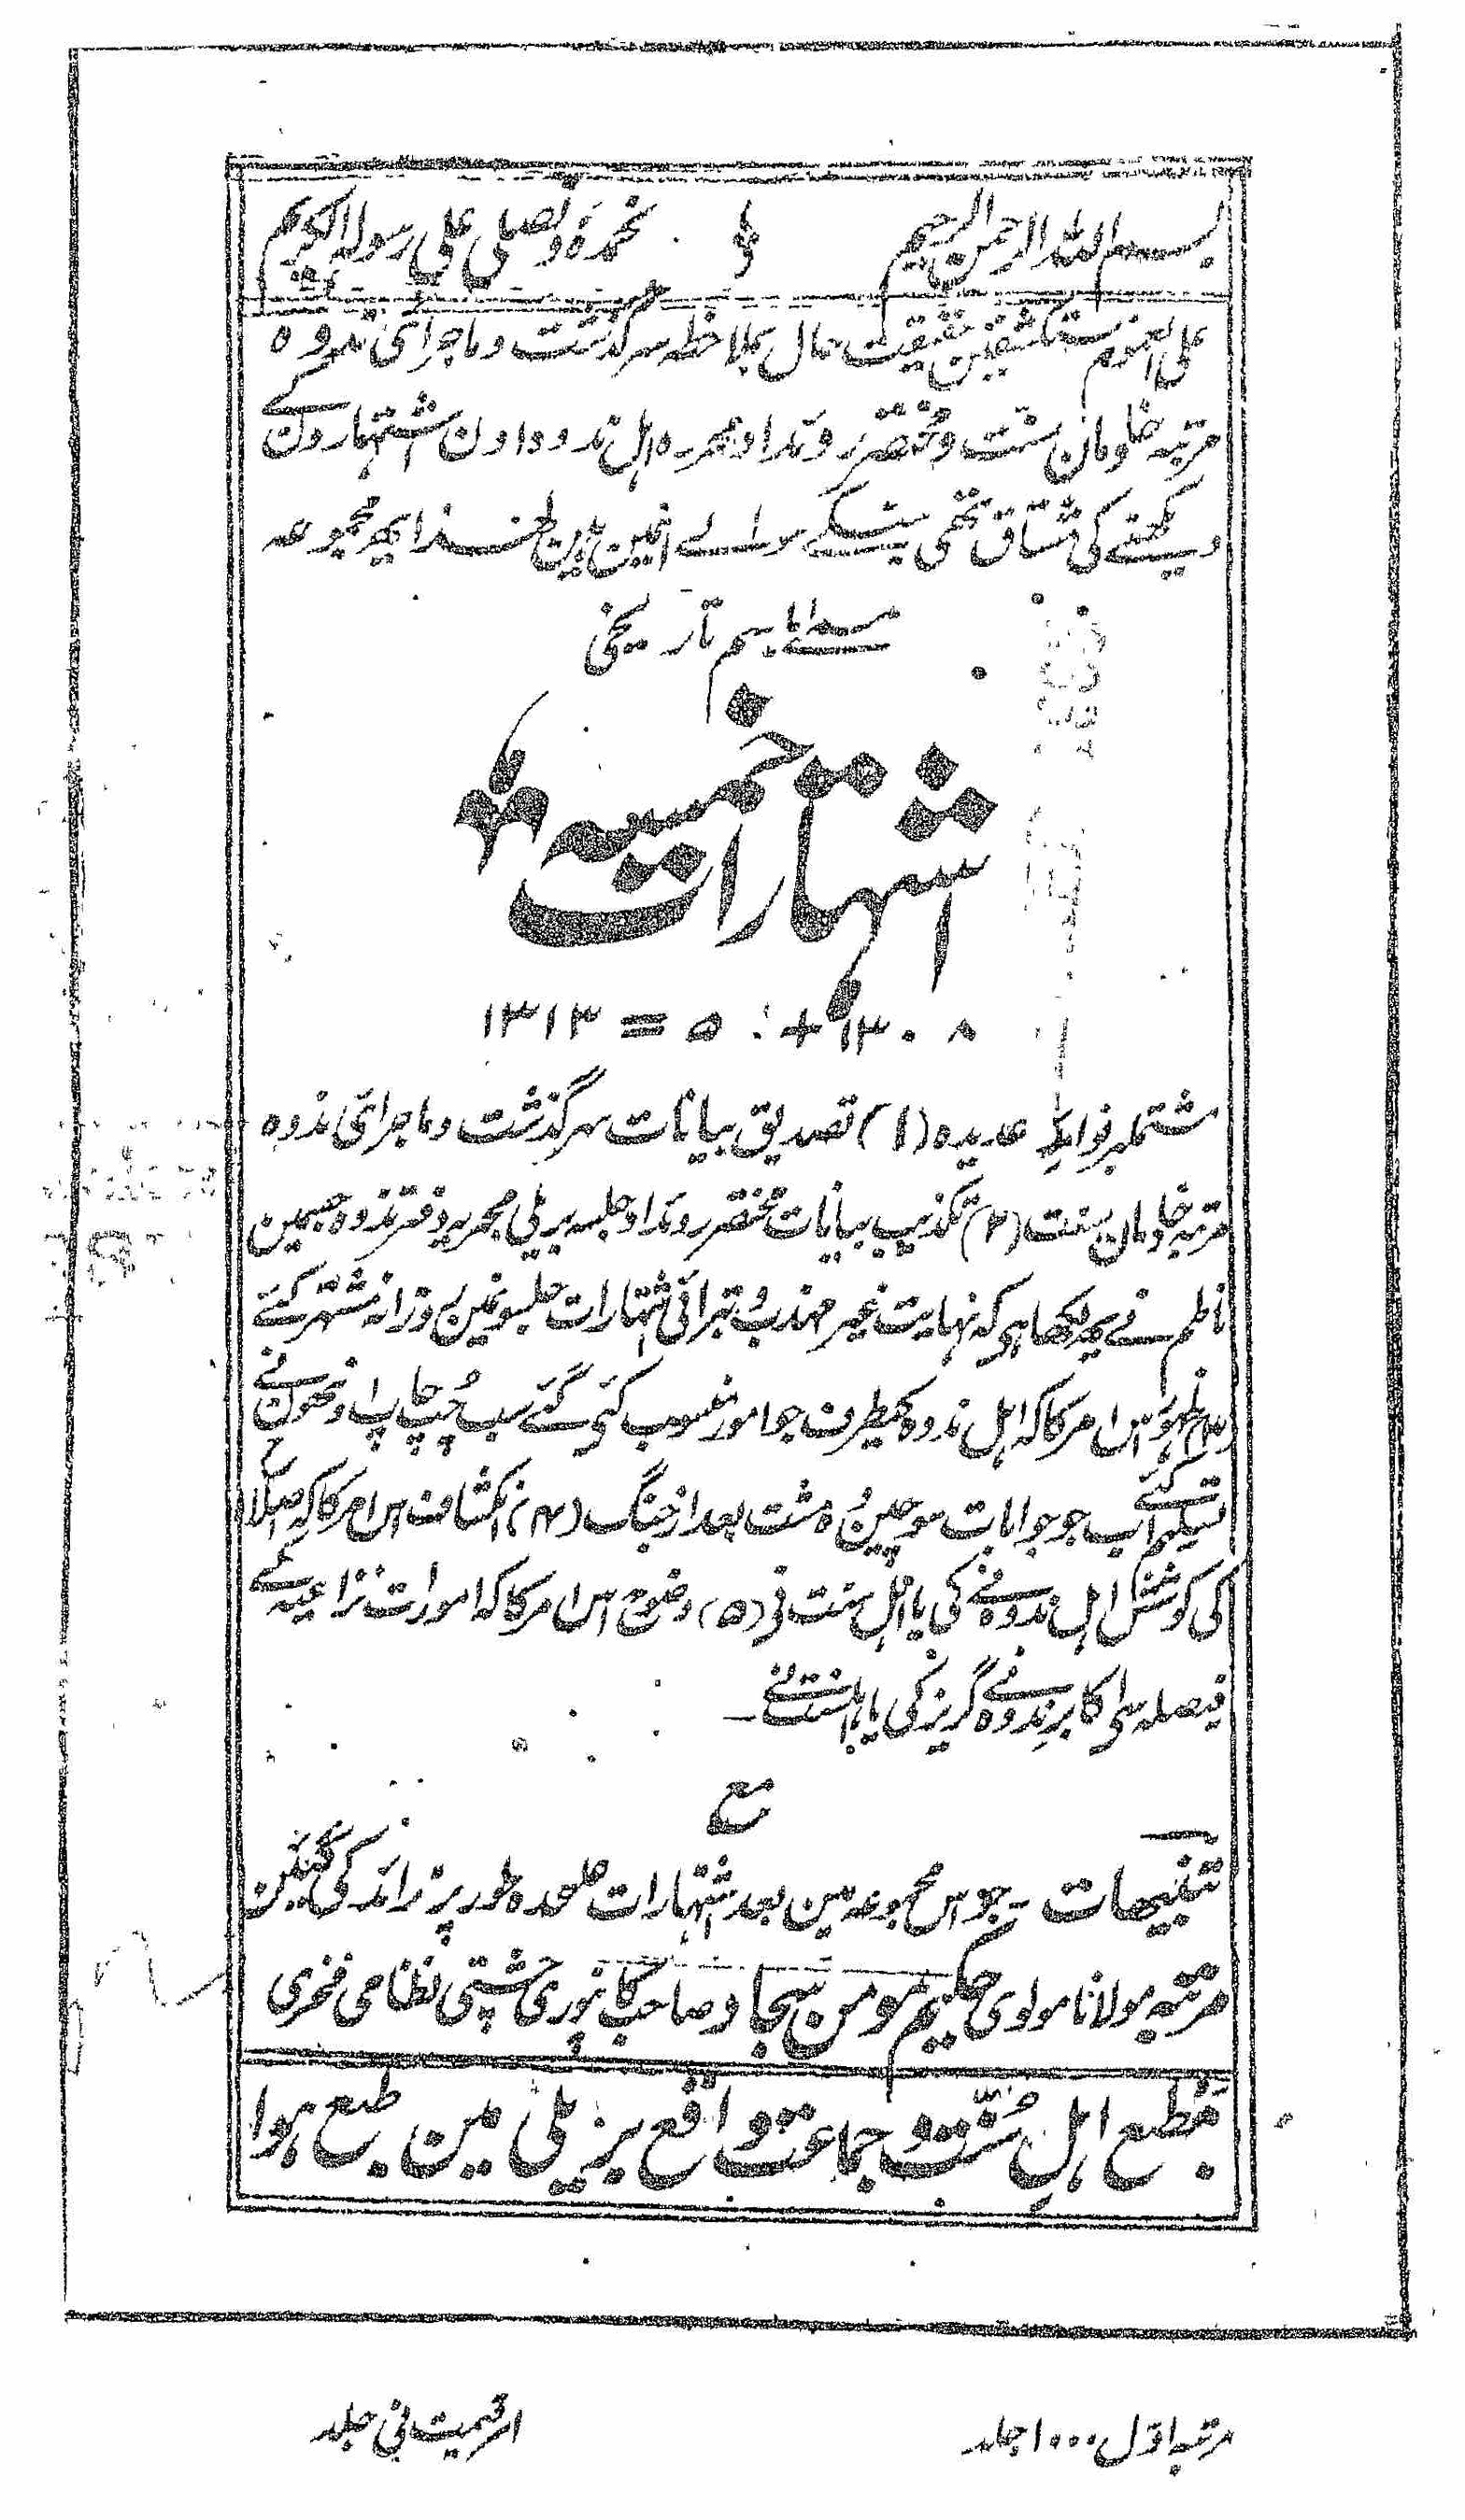 بسم اللہ الرحمن الرحیم نحمدہ و نصلی علی رسولہ الکریم
علی العموم مستکشفین حقیقت حال بملاحظہ سرگذشت و ماجرائی ندوہ
مرتبہ خادمان سنت و مختصر روئداد مجریہ اہل ندوہ اون اشتہارون کے
دیکھنے کی مشتاق تھی لہذا یہ مجموعہ
مسمے باسم تاریخی
اشتہارات خمسہ
۱۳۰۸ + ۵ = ۱۳۱۳
مشتملبر فوائد عدیدہ (۱) تصدیق بیانات سرگذشت و ماجرائی ندوہ
مرتبہ خادمان سنت (۲) تکذیب بیانات مختصر روئداد جلسہ بریلی مجریہ دفتر ندوہ جسمین
ناظم نے یہ لکھا ہو کہ نہایت غیر مہذب و تبرائی اشتہارات جلسونمین روزانہ مشتہر کئے
(۳) ظہور اس امر کا کہ اہل ندوہ کیطرف جو امور منسوب کئی گئے سب چپ چاپ اونھون نے
تسلیم کئے اب جو جوابات سوچین مشت بعد از جنگ (۴) انکشاف اس امر کا کہ اصلاح
کی کوشش اہل ندوہ نے کی یا اہل سنت نی (۵) وضوح اس امر کا کہ امورات نزاعیہ کے
فیصلہ سی اکابر ندوہ نے گریز کی یا اہلسنت نے۔
مع
تنبیہات ۔ جو اس مجموعہ مین بعد اشتہارات علحدہ طور پر زائد کی گئین
مرتبہ مولانا مولوی حکیم مومن سجاد صاحب کانپوری چشتی نظامی فخری
مطبع اہل سنت و جماعت واقع بریلی مین طبع ہوا
مرتبہ اول ۱۰۰۰ جلد قیمت فی جلد